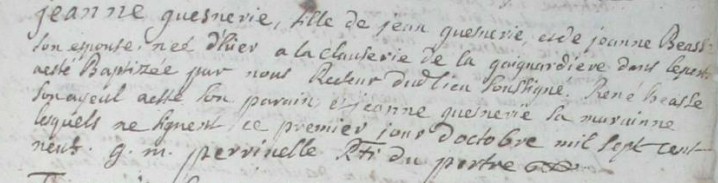 jeanne quesnerie, fille de jean quesnerie, et de jeanne Beasse
son epouse. neé d'hier a la clauserie de la gaignardiere dans le pertre
a esté Baptizée par nous Recteur dud. lieu soussigné. René beasse
son ayeul a esté son parain et jeanne quesnerie sa marainne
lesquels ne signent, ce premier jour d'octobre mil sept cent
neuf. g. m. perrinelle Rr. du pertre